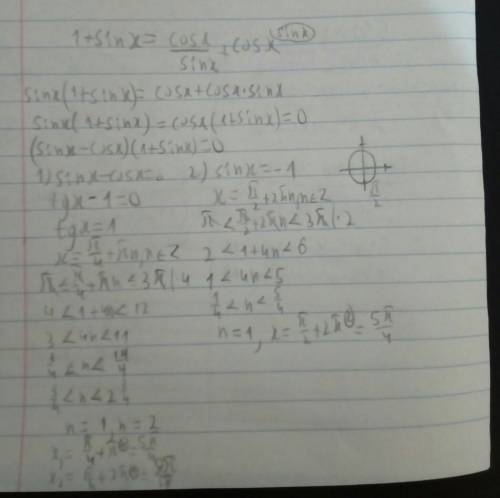 1+sinx = cosx/sinx + cosx (sinx)
sinx(1+sinx) = cosx+cosx·sinx
sinx(1+sinx) = cosx(1+sinx) = 0
(sinx-cosx)(1+sinx) = 0
1) sinx-cosx = 0 2) sinx = -1
tgx-1 = 0 x = π/2 + 2πn, n∈Z
π/2
tgx = 1 π < π/2 + 2πn < 3π |·2
x = π/4 + πn, n∈Z 2 < 1+4n < 6
π < π/4 + πn < 3π | 4 1 < 4n < 5
4 < 1+4n < 12 1/4 < n < 5/4
3 < 4n < 11 n = 1, x = π/2 + 2π = 5π/4
3/4 < n < 11/4
3/4 < n < 2
n = 1, n = 2
x₁ = π/4 + π = 5π/4
x₂ = π/4 + 2π =